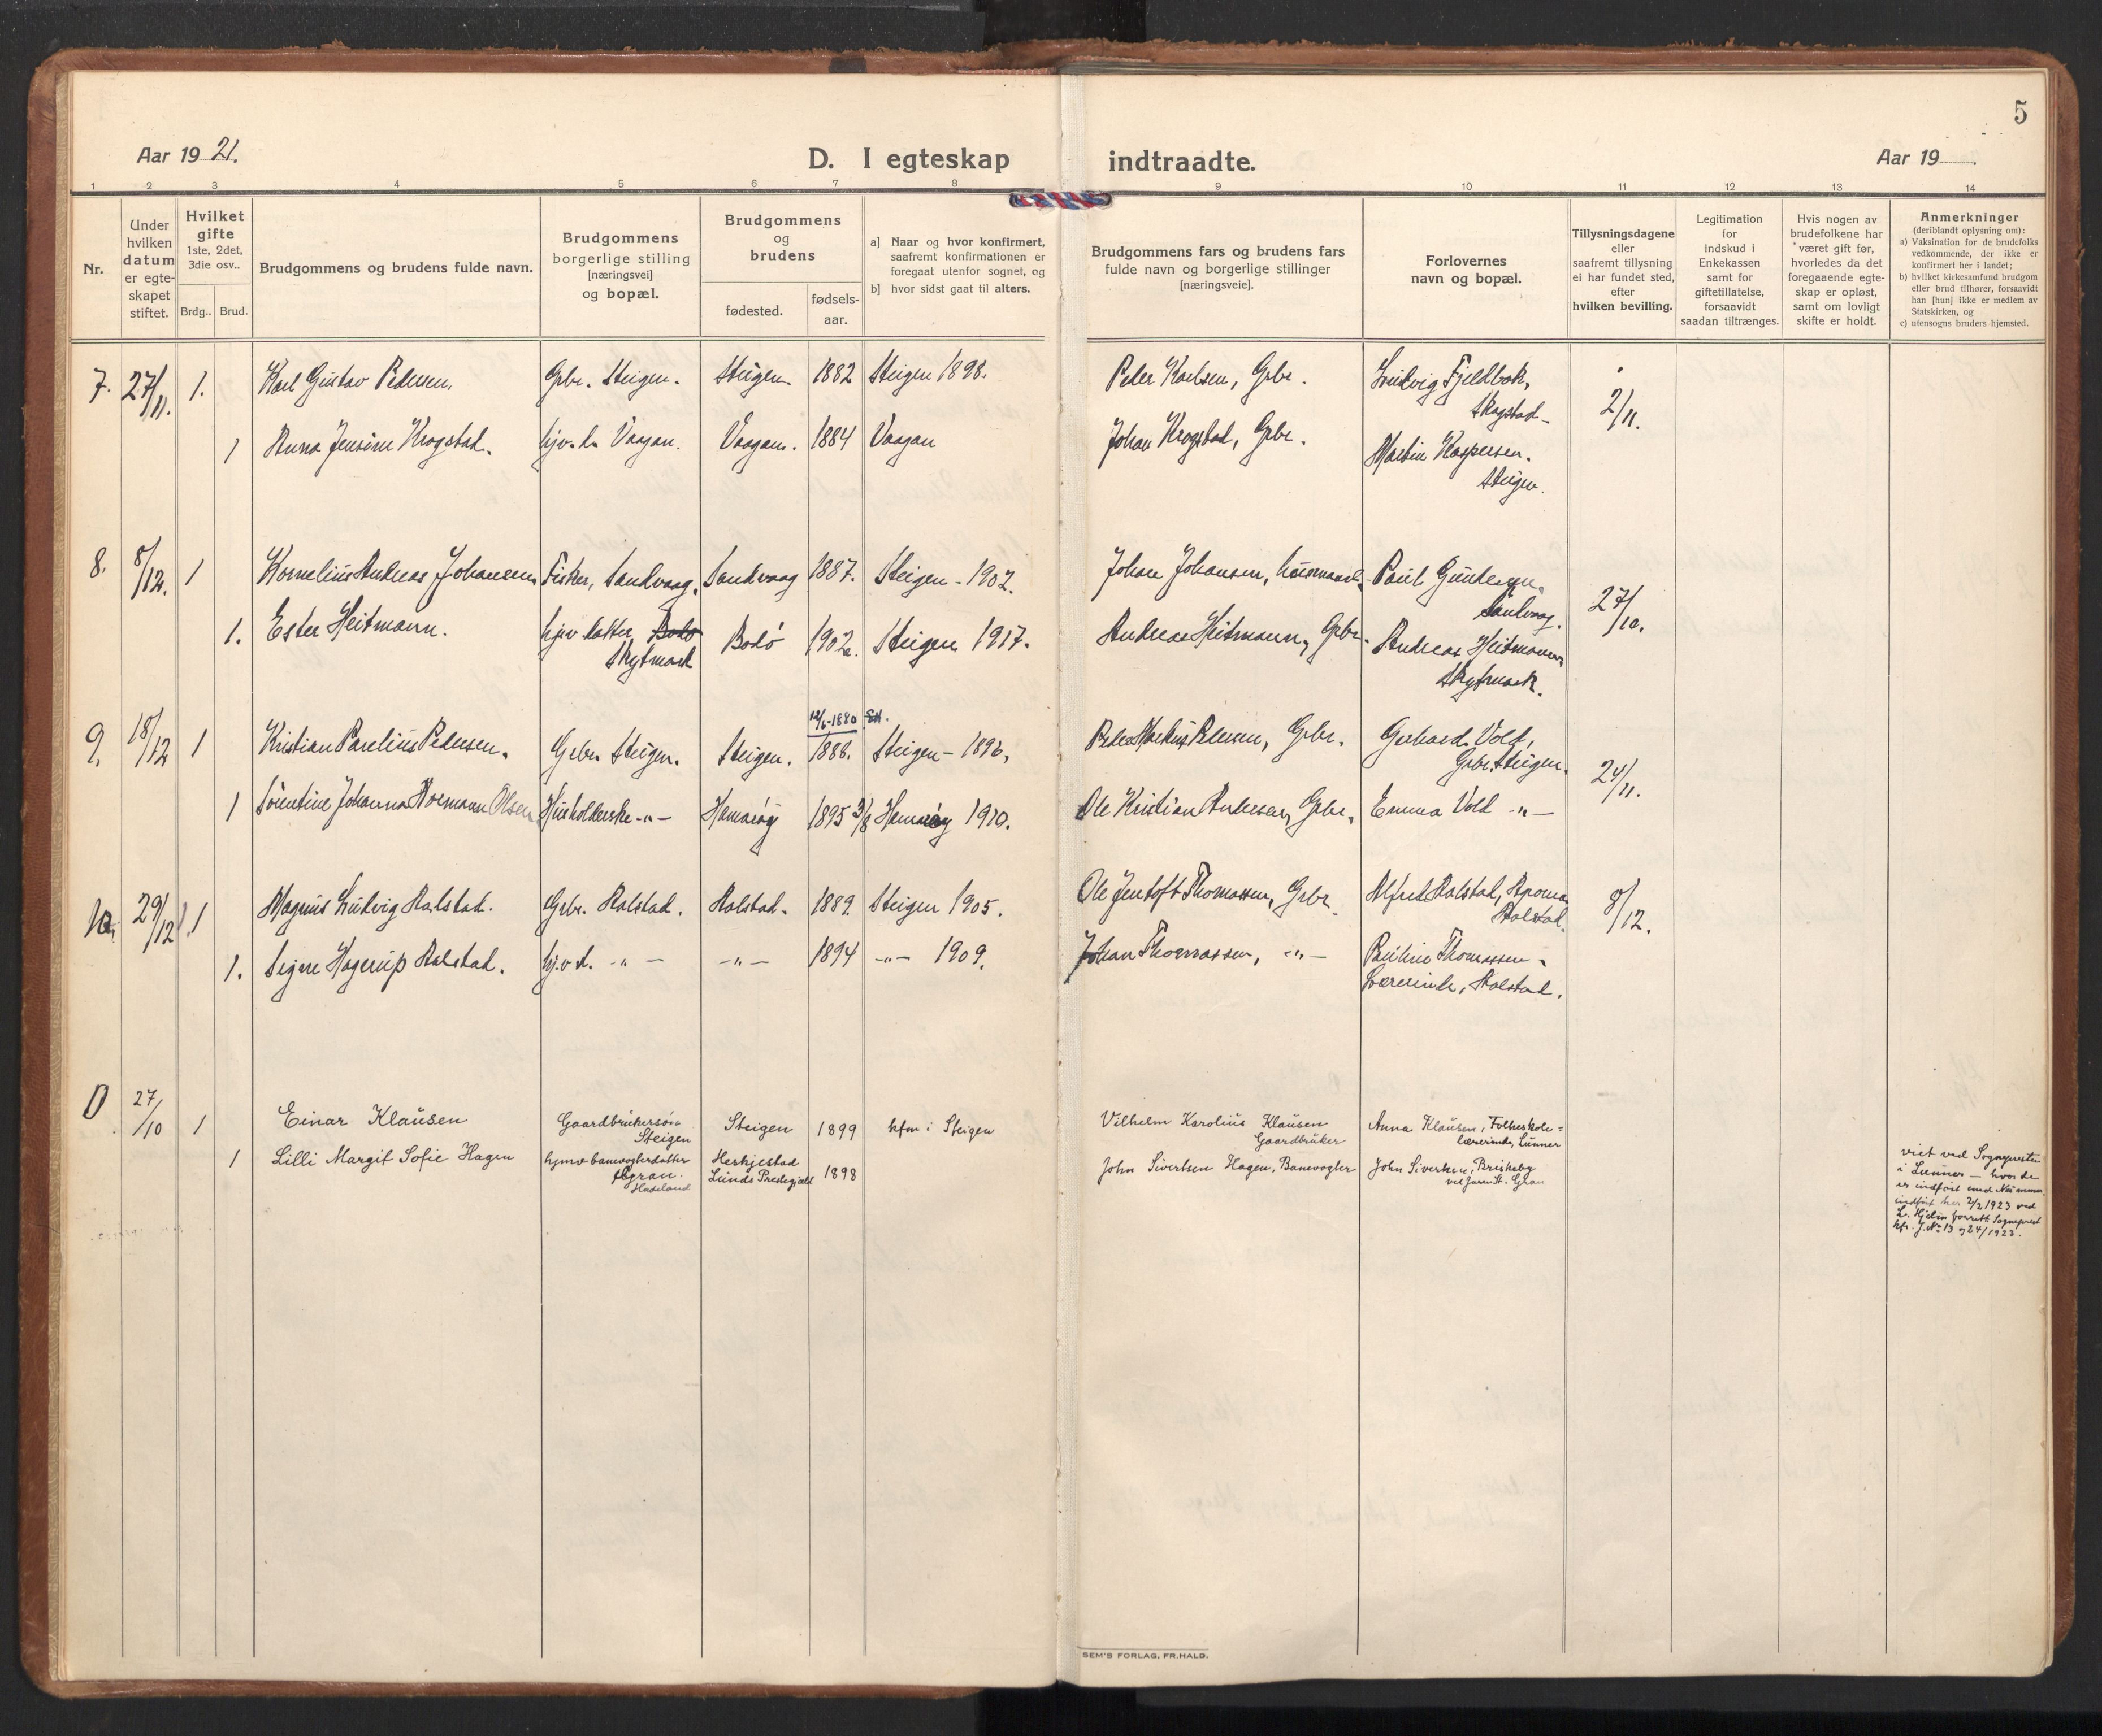 5
Aar 19 21.
D. I egteskap
indtraadte.
Aar 19
1 2 3 4 5 6 7 8 9 10 11 12 13 14
Nr.
Under
hvilken
datum
er egte-
skapet
stiftet.
Hvilket
gifte
1ste, 2det,
3die osv..
Brdg.. Brud.
Brudgommens og brudens fulde navn.
Brudgommens
borgerlige stilling
[næringsvei]
og bopæl.
Brudgommens
og
brudens
fødested.
fødsels-
aar.
a] Naar og hvor konfirmert,
saafremt konfirmationen er
foregaat utenfor sognet, og
b] hvor sidst gaat til alters.
Brudgommens fars og brudens fars
fulde navn og borgerlige stillinger
[næringsveie].
Forlovernes
navn og bopæl.
Tillysningsdagene
eller
saafremt tillysning
ei har fundet sted,
efter
hvilken bevilling.
Legitimation
for
indskud i
Enkekassen
samt for
giftetillatelse,
forsaavidt
saadan tiltrænges.
Hvis nogen av
brudefolkene har
været gift før,
hvorledes da det
foregaaende egte-
skap er opløst,
samt om lovligt
skifte er holdt.
Anmerkninger
(deriblandt oplysning om):
a) Vaksination for de brudefolks
vedkommende, der ikke er
konfirmert her i landet;
b) hvilket kirkesamfund brudgom
eller brud tilhører, forsaavidt
han [hun] ikke er medlem av
Statskirken, og
c) utensogns bruders hjemsted.
7. 27/11. 1. Karl Gustav Pedersen. Grbr. Steigen. Steigen 1882 Steigen 1898. Peder Karlsen, Grbr. Ludvig Fjeldbak,
Skagstad 2/11.
1 Anna Jensine Krogstad. hjv. d. Vaagan. Vaagan. 1884 Vaagan Johan Krogstad, Grbr. Martin Kaspersen.
Steigen.
8. 8/12. 1 Kornelius Andreas Johansen Fisker, Sandvaag. Sandvaag 1887. Steigen - 1902. Johan Johansen, husmand. Paul Gundersen.
Sandvaag. 27/10.
1. Ester Heitmann. hjv datter Bodø
Skytmark Bodø 1902. Steigen 1917. Andreas Heitmann, Grbr. Andreas Heitmann
Skytmark.
12/6-1880
9. 18/12 1 Kristian Parelius Pedersen. Grbr. Steigen. Steigen. 1888. Steigen - 1896. Peder Markus Pedersen, Grbr. Gerhard Vold,
Grbr. Steigen. 24/11.
1 Sørentine Johanna Normann Olsen Husholderske -"- Hamarøy 1895 3/8 Hamarøy 1910. Ole Kristian Andersen, Grbr. Emma Vold -"-
10. 29/12 1 Magnus Ludvig Aalstad. Grbr. Aalstad. Aalstad. 1889. Steigen 1905. Ole Jentoft Thomassen, Grbr. Alfred Aalstad,
Aalstad. 8/12.
1. Signe Hagerup Aalstad. hjv d. -"- -"- 1894 -"- 1909. Johan Thomassen, -"- Pauline Thomassen
Lærerinde, Aalstad.
0 27/10 1 Einar Klausen Gaardbrukersøn
Steigen Steigen 1899 kfm i Steigen Vilhelm Karolius Klausen
Gaardbruker Anna Klausen, Folkeskole=
lærerinde, Lunner
1 Lilli Margit Sofie Hagen hjmv banevogterdatter
Gran.
Hadeland Heskjestad
Lunds Prestegjæld 1898 John Sivertsen Hagen, Banevogter John Sivertsen, Briskeby
ved Jaren St. Gran
viet ved Sognepresten
i Lunner - hvor de
er indført med No
indført her 2/2 1923 ved
L. Hjelm Sogneprest
kfr. J. No 13 og 24/1923.
SEM'S FORLAG, FR.HALD.